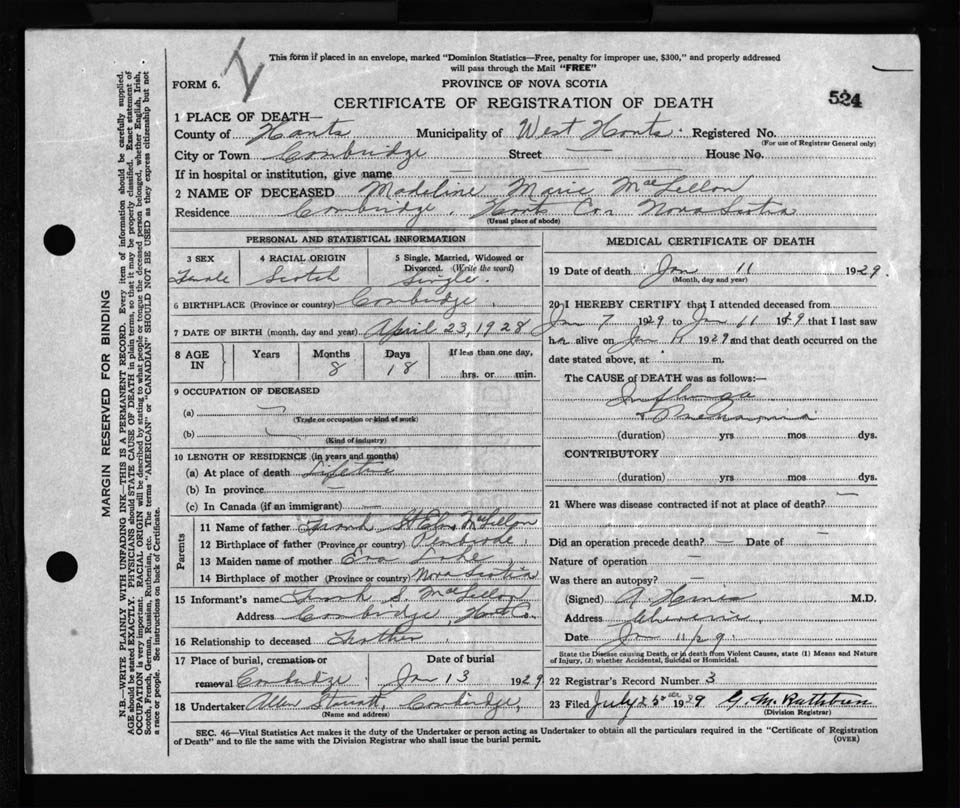 This form if placed in an envelope, marked "Dominion Statistics—Free, penalty for improper use, $300," and properly addressed
will pass through the Mail "FREE"
FORM 6.
PROVINCE OF NOVA SCOTIA
CERTIFICATE OF REGISTRATION OF DEATH
524
1 PLACE OF DEATH—
County of Hants Municipality of West Hants Registered No.
(For use of Registrar General only)
City or Town Cambridge Street — House No.
If in hospital or institution, give name — — —
2 NAME OF DECEASED Madeline Marie MacLellan
Residence Cambridge, Hants Co. Nova Scotia
(Usual place of abode)
PERSONAL AND STATISTICAL INFORMATION
3 SEX 4 RACIAL ORIGIN 5 Single, Married, Widowed or
Divorced. (Write the word)
Female Scotch Single.
6 BIRTHPLACE (Province or country) Cambridge,
7 DATE OF BIRTH (month, day and year) April 23, 1928
8 AGE IN Years Months Days If less than one day,
8 18 hrs. or min.
9 OCCUPATION OF DECEASED
(a) —
(Trade or occupation or kind of work)
(b) —
(Kind of industry)
10 LENGTH OF RESIDENCE (in years and months)
(a) At place of death Lifetime
(b) In province —
(c) In Canada (if an immigrant)
Parents
11 Name of father Frank MacLellan
12 Birthplace of father (Province or country) Pembroke,
13 Maiden name of mother Eva Lake
14 Birthplace of mother (Province or country) Nova Scotia
15 Informant's name Frank S. MacLellan
Address Cambridge, Hants Co.
16 Relationship to deceased Father
17 Place of burial, cremation or Date of burial
removal Cambridge Jan 13 1929
18 Undertaker Allen Cambridge,
(Name and address)
MEDICAL CERTIFICATE OF DEATH
19 Date of death Jan 11 1929.
(Month, day and year)
20 I HEREBY CERTIFY that I attended deceased from
Jan 7 1929 to Jan 11 1929 that I last saw
her alive on Jan 11 1929 and that death occurred on the
date stated above, at m.
The CAUSE OF DEATH was as follows:—
Influenza
& Pneumonia
(duration) yrs mos dys.
CONTRIBUTORY
(duration) yrs mos dys.
21 Where was disease contracted if not at place of death? —
Did an operation precede death? — Date of —
Nature of operation —
Was there an autopsy? —
(Signed) A. M.D.
Address
Date Jan 11/29.
State the Disease causing Death, or in death from Violent Causes, state (1) Means and Nature
of Injury, (2) whether Accidental, Suicidal or Homicidal.
22 Registrar's Record Number 3
23 Filed July 25th 1929 G. M. Rathbun
(Division Registrar)
SEC. 46—Vital Statistics Act makes it the duty of the Undertaker or person acting as Undertaker to obtain all the particulars required in the "Certificate of Registration
of Death" and to file the same with the Division Registrar who shall issue the burial permit.
(OVER)
MARGIN RESERVED FOR BINDING
N.B.—WRITE PLAINLY WITH UNFADING INK—THIS IS A PERMANENT RECORD. Every item of information should be carefully supplied.
AGE should be stated EXACTLY. PHYSICIANS should STATE CAUSE OF DEATH in plain terms, so that it may be properly classified. Exact statement of
OCCUPATION is very important. RACIAL ORIGIN will be described by stating to what people or tongue the deceased person belonged, whether English, Irish,
Scotch, French, German, Russian, Ruthenian, etc. The terms "AMERICAN" or "CANADIAN" SHOULD NOT BE USED as they express citizenship but not
a race or people. See instructions on back of Certificate.